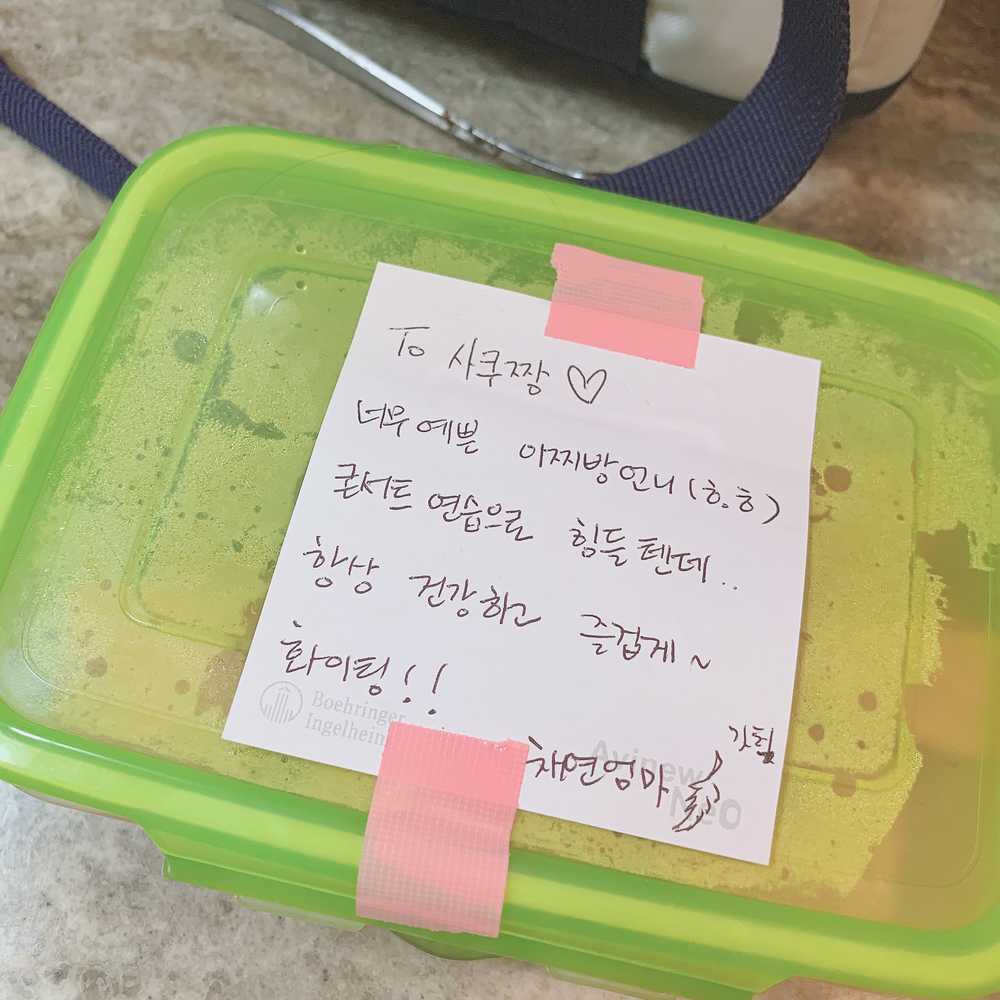 To 사쿠짱 ♡
너무 예쁜 아찌방언니 (ㅎ.ㅎ)
콘서트 연습으로 힘들텐데..
항상 건강하고 즐겁게~
화이팅!!
Boehringer
Ingelheim
채연엄마
Avinew
NeO